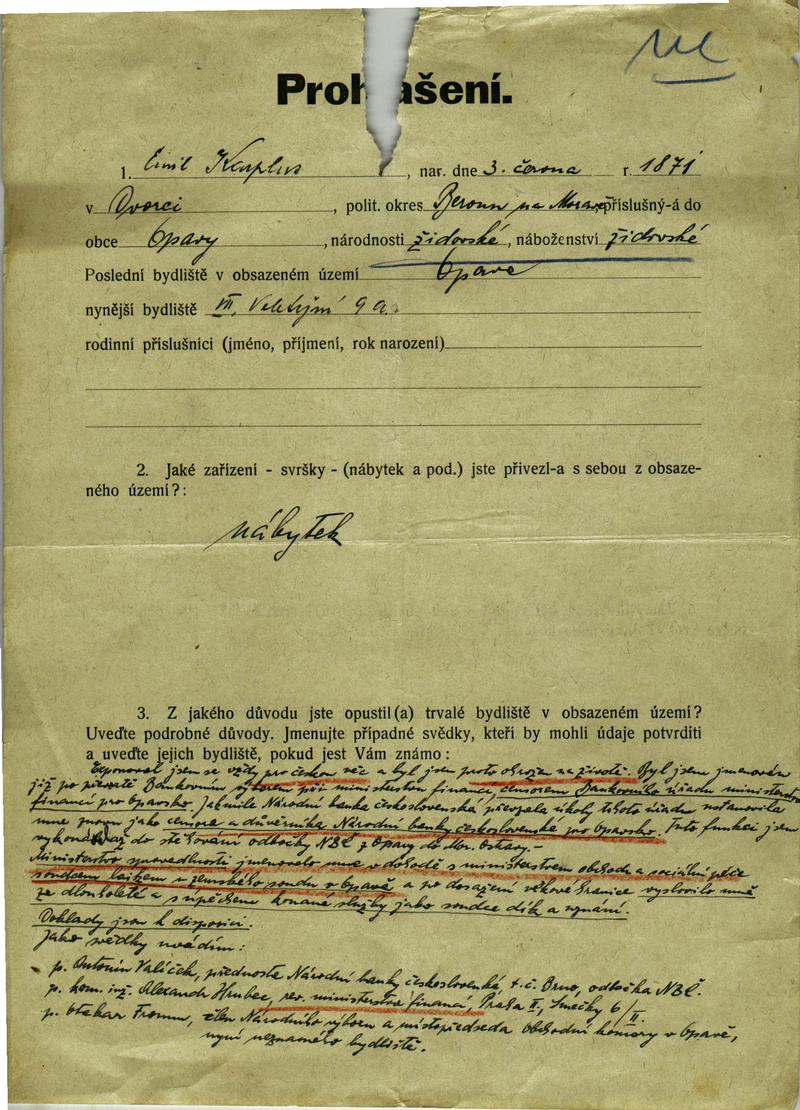 Prohlášení.
1. Emil Karplus, nar. dne 3. června r. 1871
v Dvorci, polit. okres Beroun na Moravě, příslušný-á do
obce Opavy, národnosti židovské, náboženství židovské
Poslední bydliště v obsazeném území Opava
nynější bydliště VII, Veletržní 9 a.
rodinní příslušníci (jméno, příjmení, rok narození)
2. Jaké zařízení - svršky - (nábytek a pod.) jste přivezl-a s sebou z obsaze-
ného území?:
nábytek
3. Z jakého důvodu jste opustil(a) trvalé bydliště v obsazeném území?
Uveďte podrobné důvody. Jmenujte případné svědky, kteří by mohli údaje potvrditi
a uveďte jejich bydliště, pokud jest Vám známo:
Exponoval jsem se vždy pro českou věc a byl jsem proto ohrožen na životě. Byl jsem jmenován
již po převratě Bankovním výborem při ministerstvu financí, censorem Bankovního úřadu ministerstva
financí pro Opavsko. Jakmile Národní banka československá převzala úkoly tohoto úřadu ustanovila
mne znovu jako censora a důvěrníka Národní banky československé pro Opavsko. Tuto funkci jsem
vykonával až do stěhování odbočky NBČ z Opavy do Mor. Ostravy.-
Ministerstvo spravedlnosti jmenovalo mne v dohodě s ministerstvem obchodu a sociální péče
soudcem laikem u zemského soudu v Opavě a po dosažení věkové hranice vyslovilo mně
za dlouholeté a s úspěchem konané služby jako soudce dík a uznání.
Doklady jsou k disposici.
Jako svědky uvádím:
p. Antonín Valíček, přednosta Národní banky československé, t. č. Brno, odbočka NBČ.
p. kom. inž. Alexandr Hrubec, rev. ministerstva financí, Praha II, Smečky 6/II.
p. Otakar Fromm, člen Národního výboru a místopředseda Obchodní komory v Opavě,
nyní neznámého bydliště.